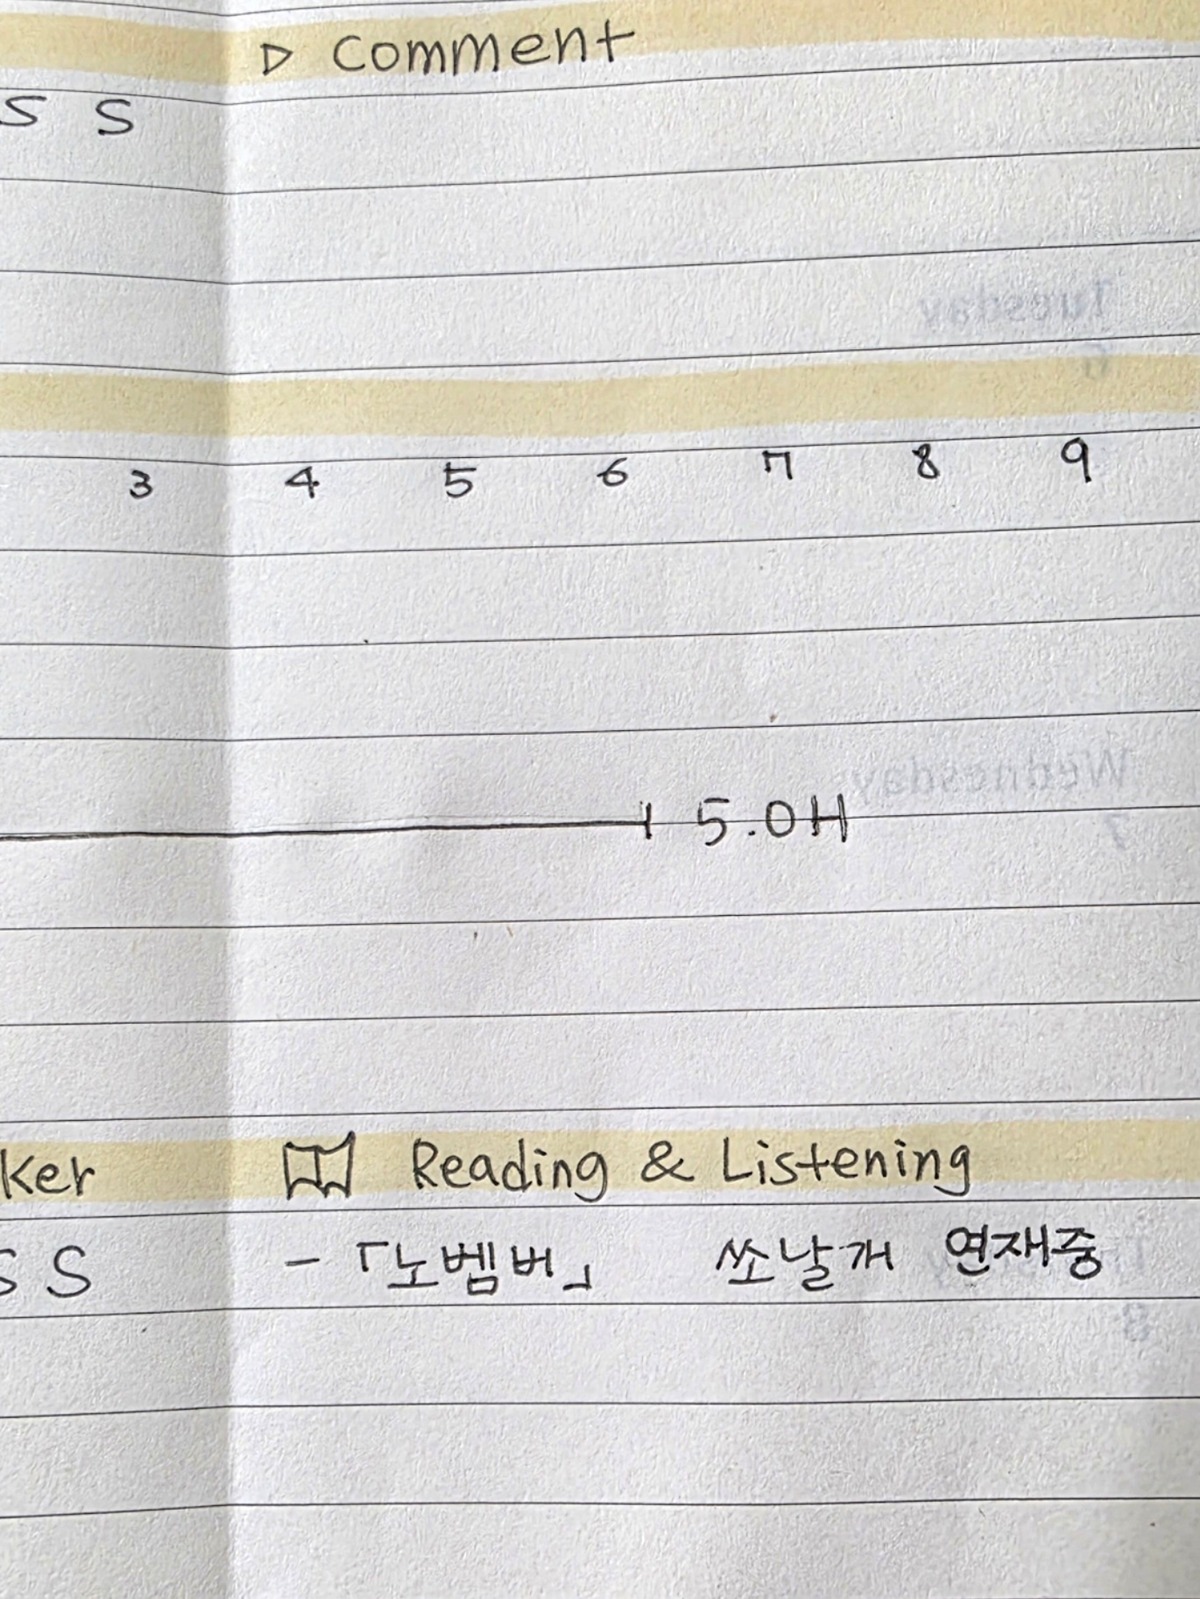 ▷ Comment
S S
3 4 5 6 7 8 9
5.0H
ker Reading & Listening
S S - 「노벰버」 쏘날개 연재중